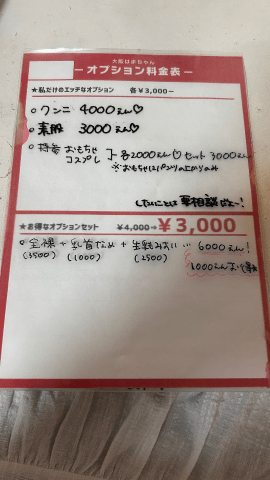 大阪はまちゃん
ーオプション料金表ー
★私だけのエッチなオプション 各¥3,000~
○クンニ 4000えん♡
○素股 3000えん♡
○持参 おもちゃ コスプレ 各2000えん♡ セット 3000えん
※おもちゃはパンツの上からのみ
したいことは 要相談だよ~!
★お得なオプションセット ¥4,000→¥3,000
○全裸 + 乳首なめ + 生 もみ 6000えん!
(3500) (1000) (2500)
1000えんお得